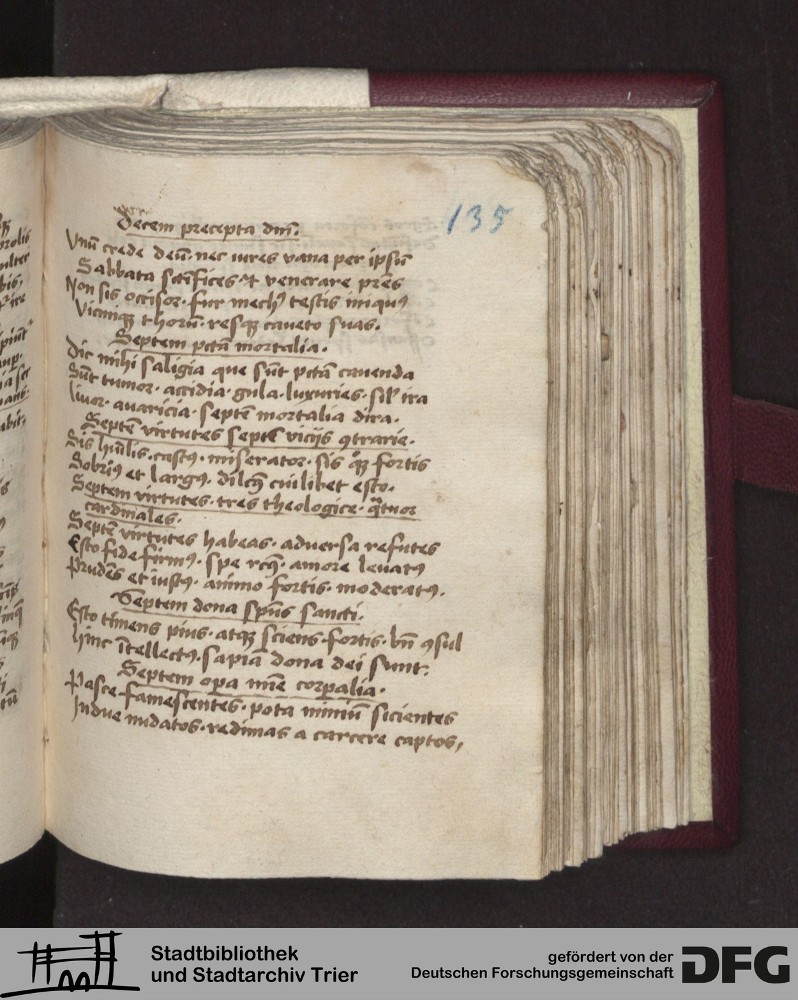 135
Decem precepta dm̄.
Vnū crede deū. nec iures vana per ipsū
Sabbata sctifices ⁊ venerare pr̄es
Non sis occisor. fur mechꝰ testis iniquꝰ
Viciniqꝫ thorū. resqꝫ caueto suas.
Septem pctā mortalia.
Dic mihi saligia que sūt pctā cauenda
Sūt tumor. accidia. gula. luxuries. sil' ira
liuor. auaricia. septē mortalia dira.
Septē virtutes septē vicijs ꝯtrarie.
Sis hūlis. castꝰ. miserator. sis qꝫ fortis
Sobriꝰ et largꝰ. cuilibet esto.
Septem virtutes. tres theologice. q̃tuor
cardinales.
Septē virtutes habeas. aduersa refutes
Esto fide firmꝰ. spe amore leuatꝰ
Prudēs et iustꝰ. animo fortis. moderatꝰ.
Septem dona spūs sancti.
Esto timens pius. atqꝫ sciens. fortis. bn̄ ꝯsul
hinc ītellectꝰ. sapiā dona dei sunt.
Septem opa mīe corpalia.
Pasce famescentes. pota nimiū sicientes
Indue nudatos. redimas a carcere captos,
Stadtbibliothek
und Stadtarchiv Trier
gefördert von der
Deutschen Forschungsgemeinschaft
DFG